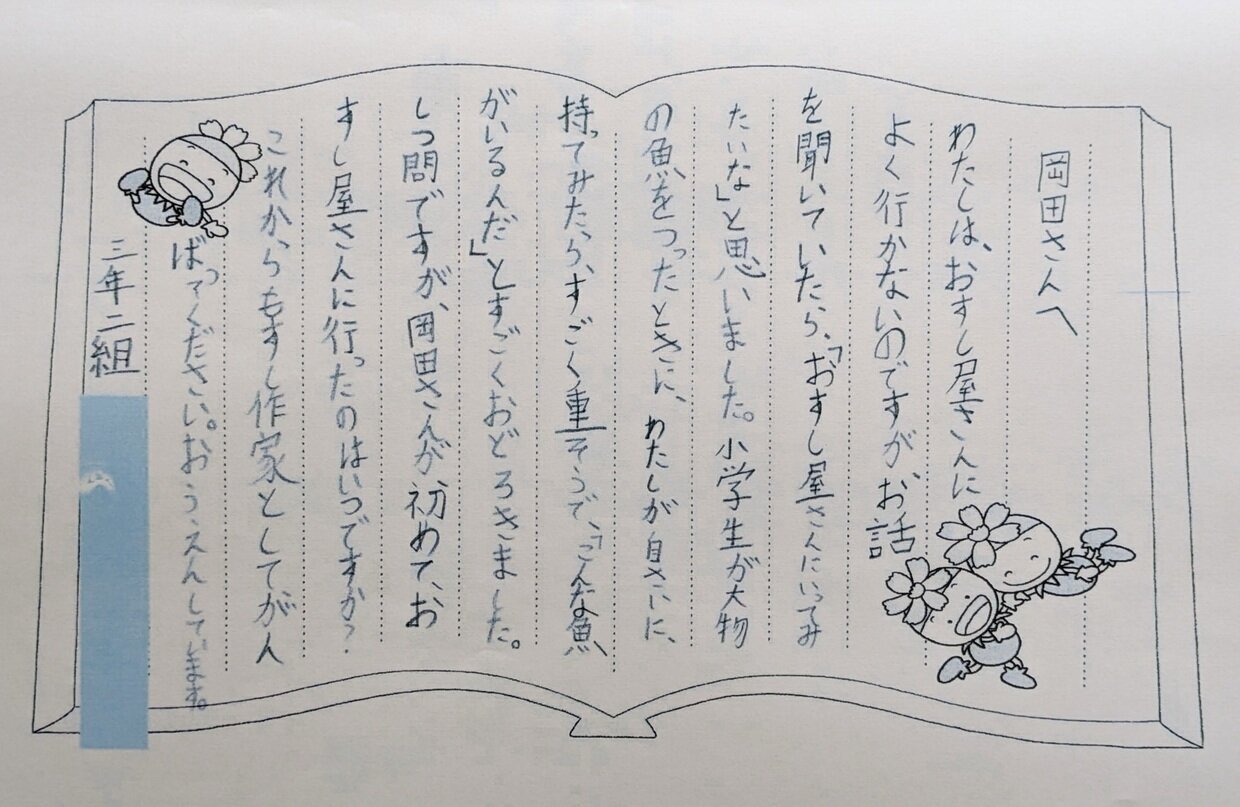 岡田さんへ
わたしは、おすし屋さんに
よく行かないのですが、お話
を聞いていたら、「おすし屋さんにいってみ
たいな」と思いました。小学生が大物
の魚をつったときに、わたしが自さいに、
持ってみたら、すごく重そうで、「こんな魚、
がいるんだ」とすごくおどろきました。
しつ問ですが、岡田さんが初めて、お
すし屋さんに行ったのはいつですか?
これからもすし作家としてがん
ばってください。おうえんしています。
三年二組